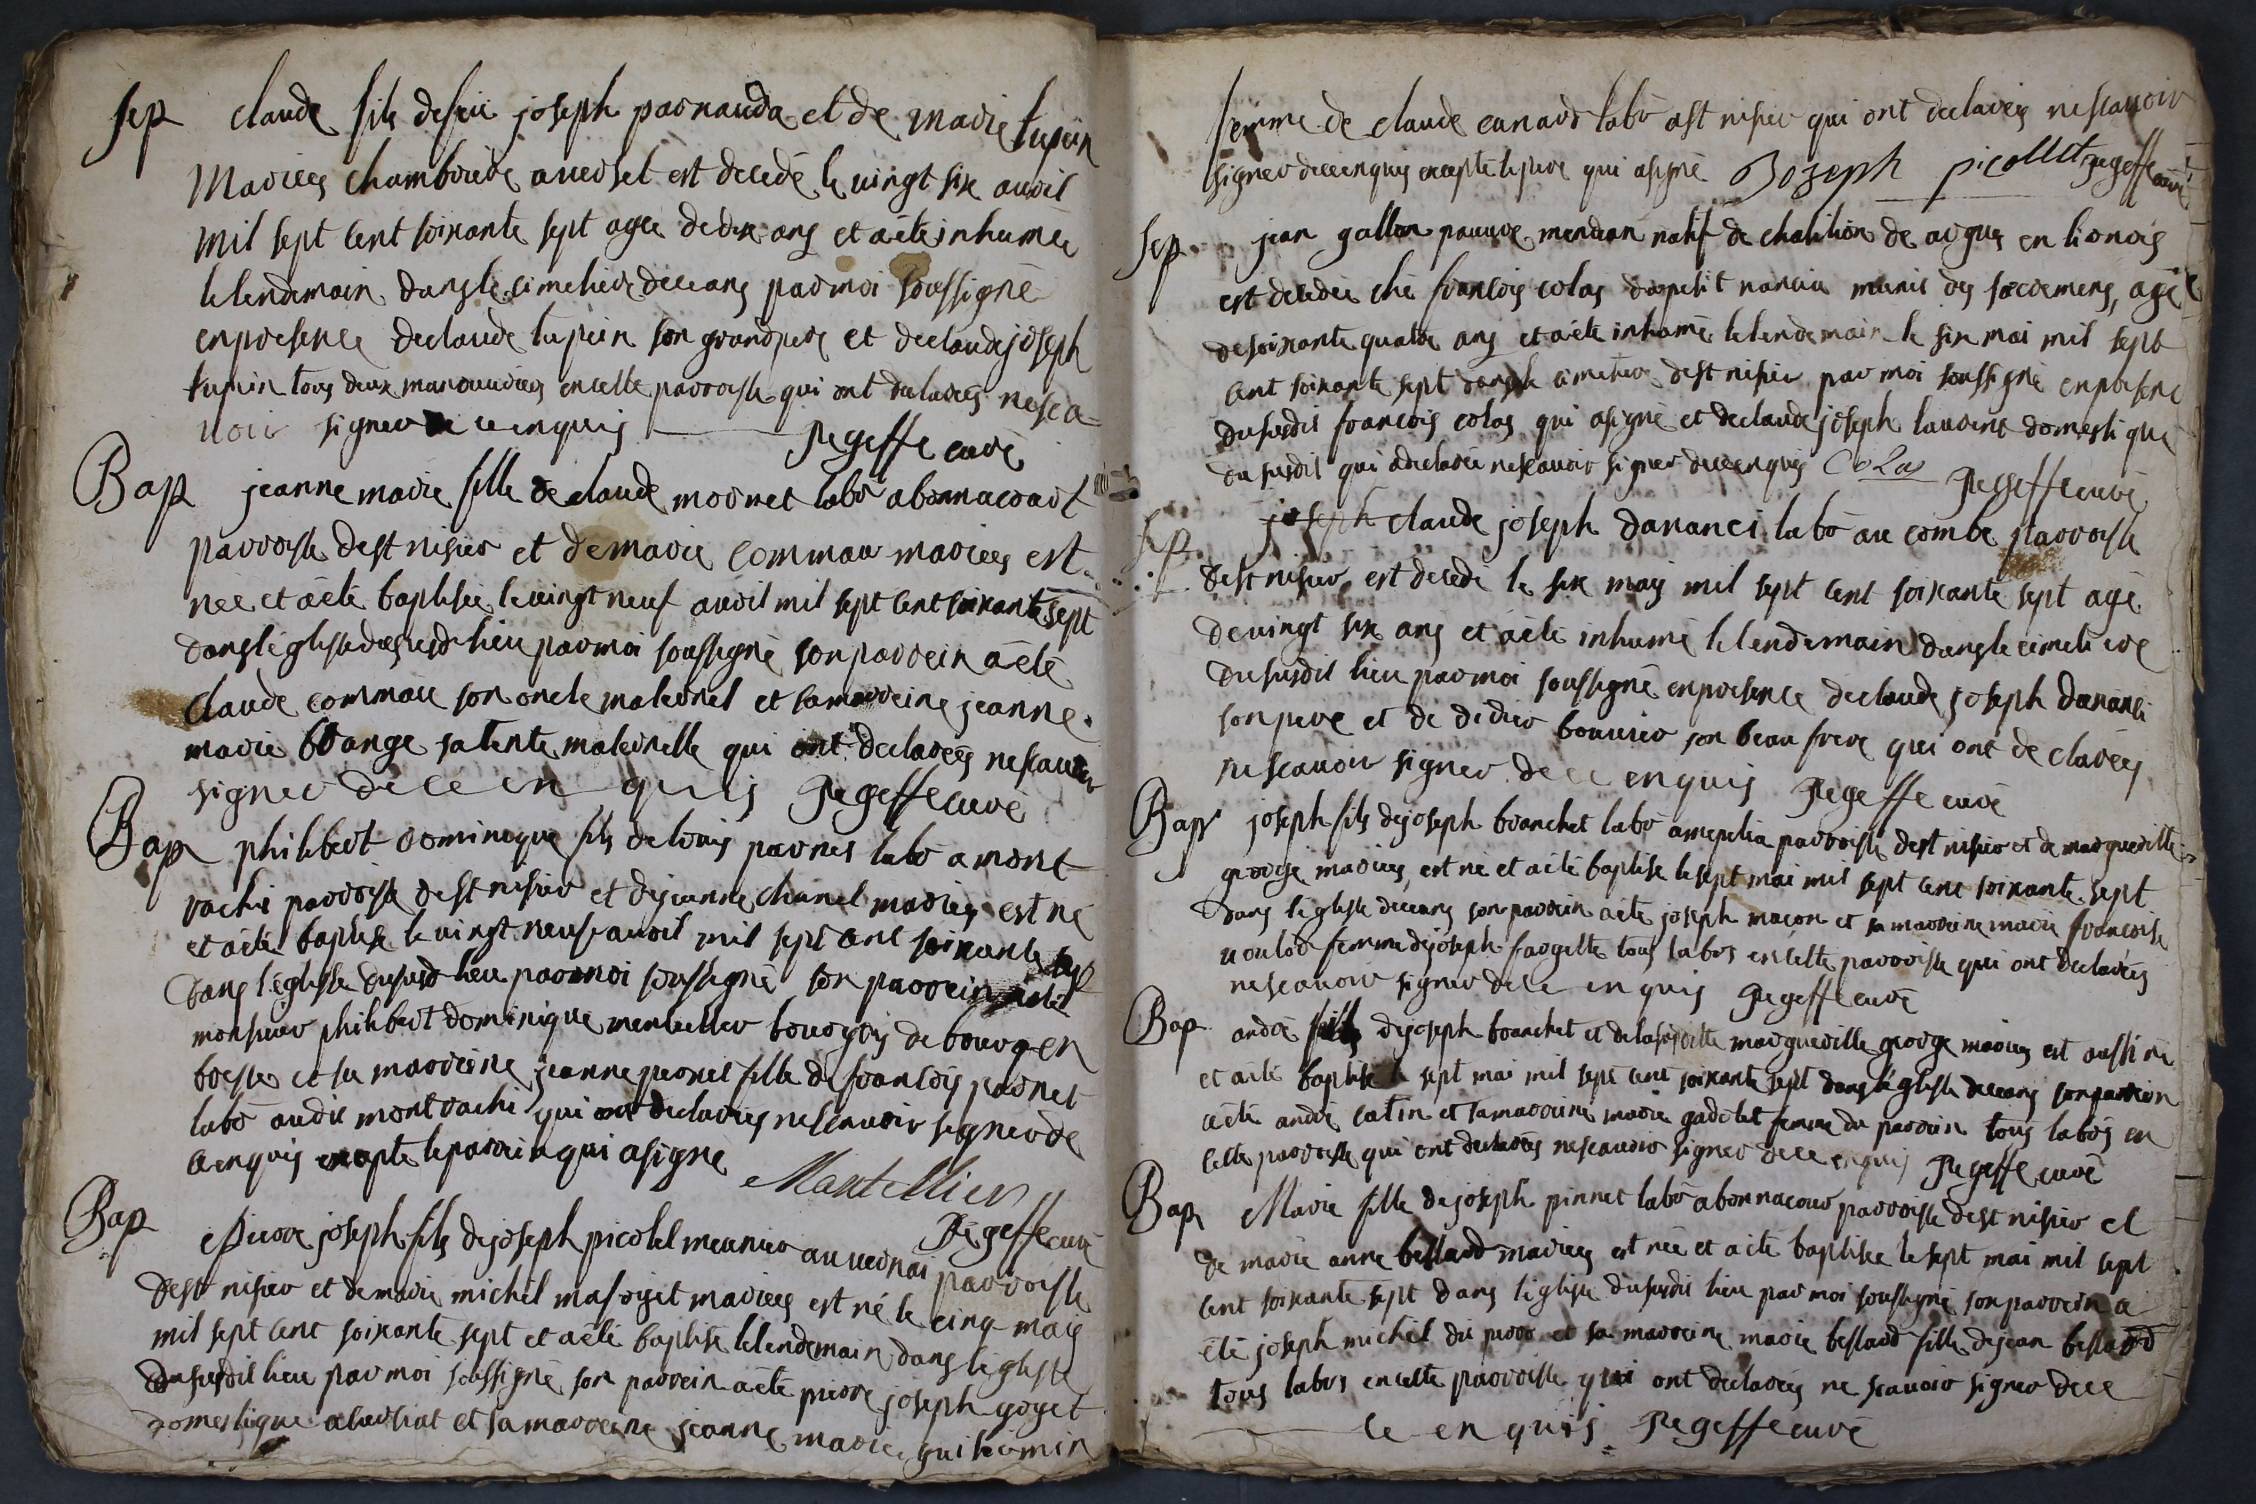 Sep claude fils de feu joseph parnauda et de marie tupin
mariees chambriede a verset est decedé le vingt six avril
mil sept cent soixante sept agee de dix ans et a été inhumée
le lendemain dans le cimetiere de ceans par moi soussigné
en presence de claude tupin son grand pere et de claude joseph
tupin tous deux manouvriers en cette parroisse qui ont declarés ne sca
voir signer de ce enquis regeffe curé
Bap jeanne marie fille de claude mornet labr a bonnacourt
parroisse de st nisier et de marie commau mariees est
née et a été baptisée le vingt neuf avril mil sept cent soixante sept
dans l'église du susd lieu par moi soussigné son parrein a été
claude commau son oncle maternel et sa marreine jeanne
marie blange sa tente maternelle qui ont declarés ne scavoir
signer de ce en quis regeffe curé
Bap philibert dominique fils de louis parnet labr a mont
rachi parroisse de st nisier et de jeanne chanel mariés est né
et a été baptisé le vingt neuf avril mil sept cent soixante sept
dans l'église du susd lieu par moi soussigné son parrein a été
monsieur philibert dominique bourgois de bourg en
bresse et sa marreine jeanne parnet fille de francois parnet
labr audit montrachi qui ont declarés ne scavoir signer de
ce enquis excepté le parrein qui a signé Mantellier
Regeffe curé
Bap pierre joseph fils de joseph picolet meunier au vernai parroisse
de st nisier et de marie michel masoyet mariees est né le cinq mai
mil sept cent soixante sept et a été baptisé le lendemain dans l'eglise
du susdit lieu par moi soussigné son parrein a été pierre joseph goyet
domestique et sa marreine jeanne marie guillermin
femme de claude canard labr a st nisier qui ont declarés ne scavoir
signer de ce enquis excepté le pere qui a signé Jozeph picollet regeffe curé
Sep jean gallon pauvre mendian natif de chatilion de argues en lionois
est decedée ché francois colas du petit nanciu munis des sacremens, agé
de soixante quatre ans et a été inhumé le lendemain le six mai mil sept
cent soixante sept dans le cimetiere de st nisier par moi soussigné en presence
du susdit francois colas qui a signé et de claude joseph laurent domestique
du susdit qui a declaré ne scavoir signer de ce enquis Colas regeffe curé
Sep joseph claude joseph dananci labr au combe parroisse
de st nisier est decedé le six may mil sept cent soixante sept agé
de vingt six ans et a été inhumé le lendemain dans le cimetiere
du susdit lieu par moi soussigné en presence de claude joseph dananci
son pere et de didier bouvier son beau frere qui ont declarés
ne scavoir signer de ce enquis regeffe curé
Bap joseph fils de joseph branchet labr a mepelia parroisse de st nisier et de margueritte
george mariees est né et a été baptisé le sept mai mil sept cent soixante sept
dans l'eglise de ceans son parrein a été joseph macon et sa marreine marie francoise
voulod femme de joseph fargette tous labrs en cette parroisse qui ont declarés
ne scavoir signer de ce enquis regeffe curé
Bap andré fils de joseph branchet et de la susditte margueritte george mariees est aussi né
et a été baptisé le sept mai mil sept cent soixante sept dans l'église de ceans son parrein
a été andré catin et sa marreine marie gadolet femme du parrein tous labrs en
cette parroisse qui ont declarés ne scavoir signer de ce enquis regeffe curé
Bap Marie fille de joseph pinnet labr a bonnacour parroisse de st nisier et
de marie anne bestard mariees est née et a été baptisée le sept mai mil sept
cent soixante sept dans l'eglise du susdit lieu par moi soussigné son parrein a
été joseph michel du et sa marreine marie bestard fille de jean bestard
tous labrs en cette parroisse qui ont declarés ne scavoir signer de ce
ce enquis regeffe curé